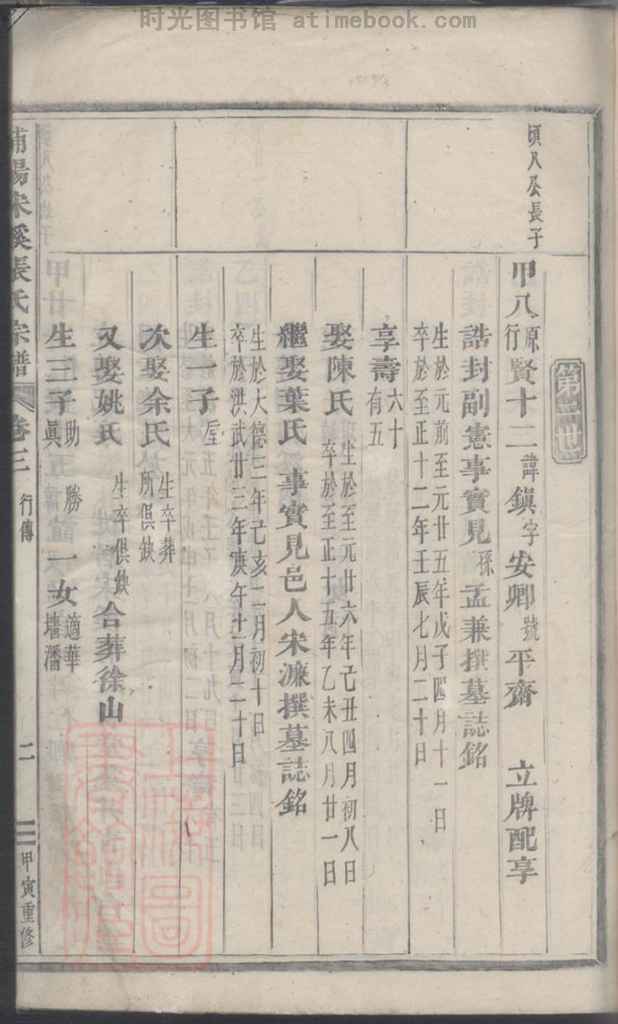 时光图书馆 atimebook.com
第三世
八公長子
甲八原行賢十二諱鎮字安卿號平齋 立牌配享
誥封副憲事實見孫孟兼撰墓誌銘
生於元前至元廿五年戊子四月十一日
卒於至正十二年壬辰七月二十日
享壽六十有五
娶陳氏 生於至元廿六年己丑四月初八日
卒於至正十五年乙未八月廿一日
繼娶葉氏 事實見邑人宋濂撰墓誌銘
生於大德三年己亥二月初十日
卒於洪武廿三年庚午十二月二十日
生一子
次娶余氏 生卒葬所俱缺
又娶姚氏 生卒俱缺 合葬徐山
生三子 助 勝 真 一女 適華墻潘
浦陽宋溪張氏宗譜 卷三 行傳 二 甲寅重修